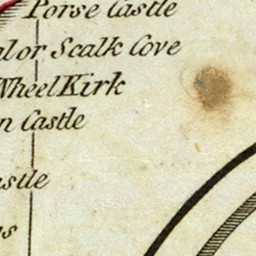 Porse Castle
al or Scalk Cove
Wheel Kirk
n Castle
astle
s